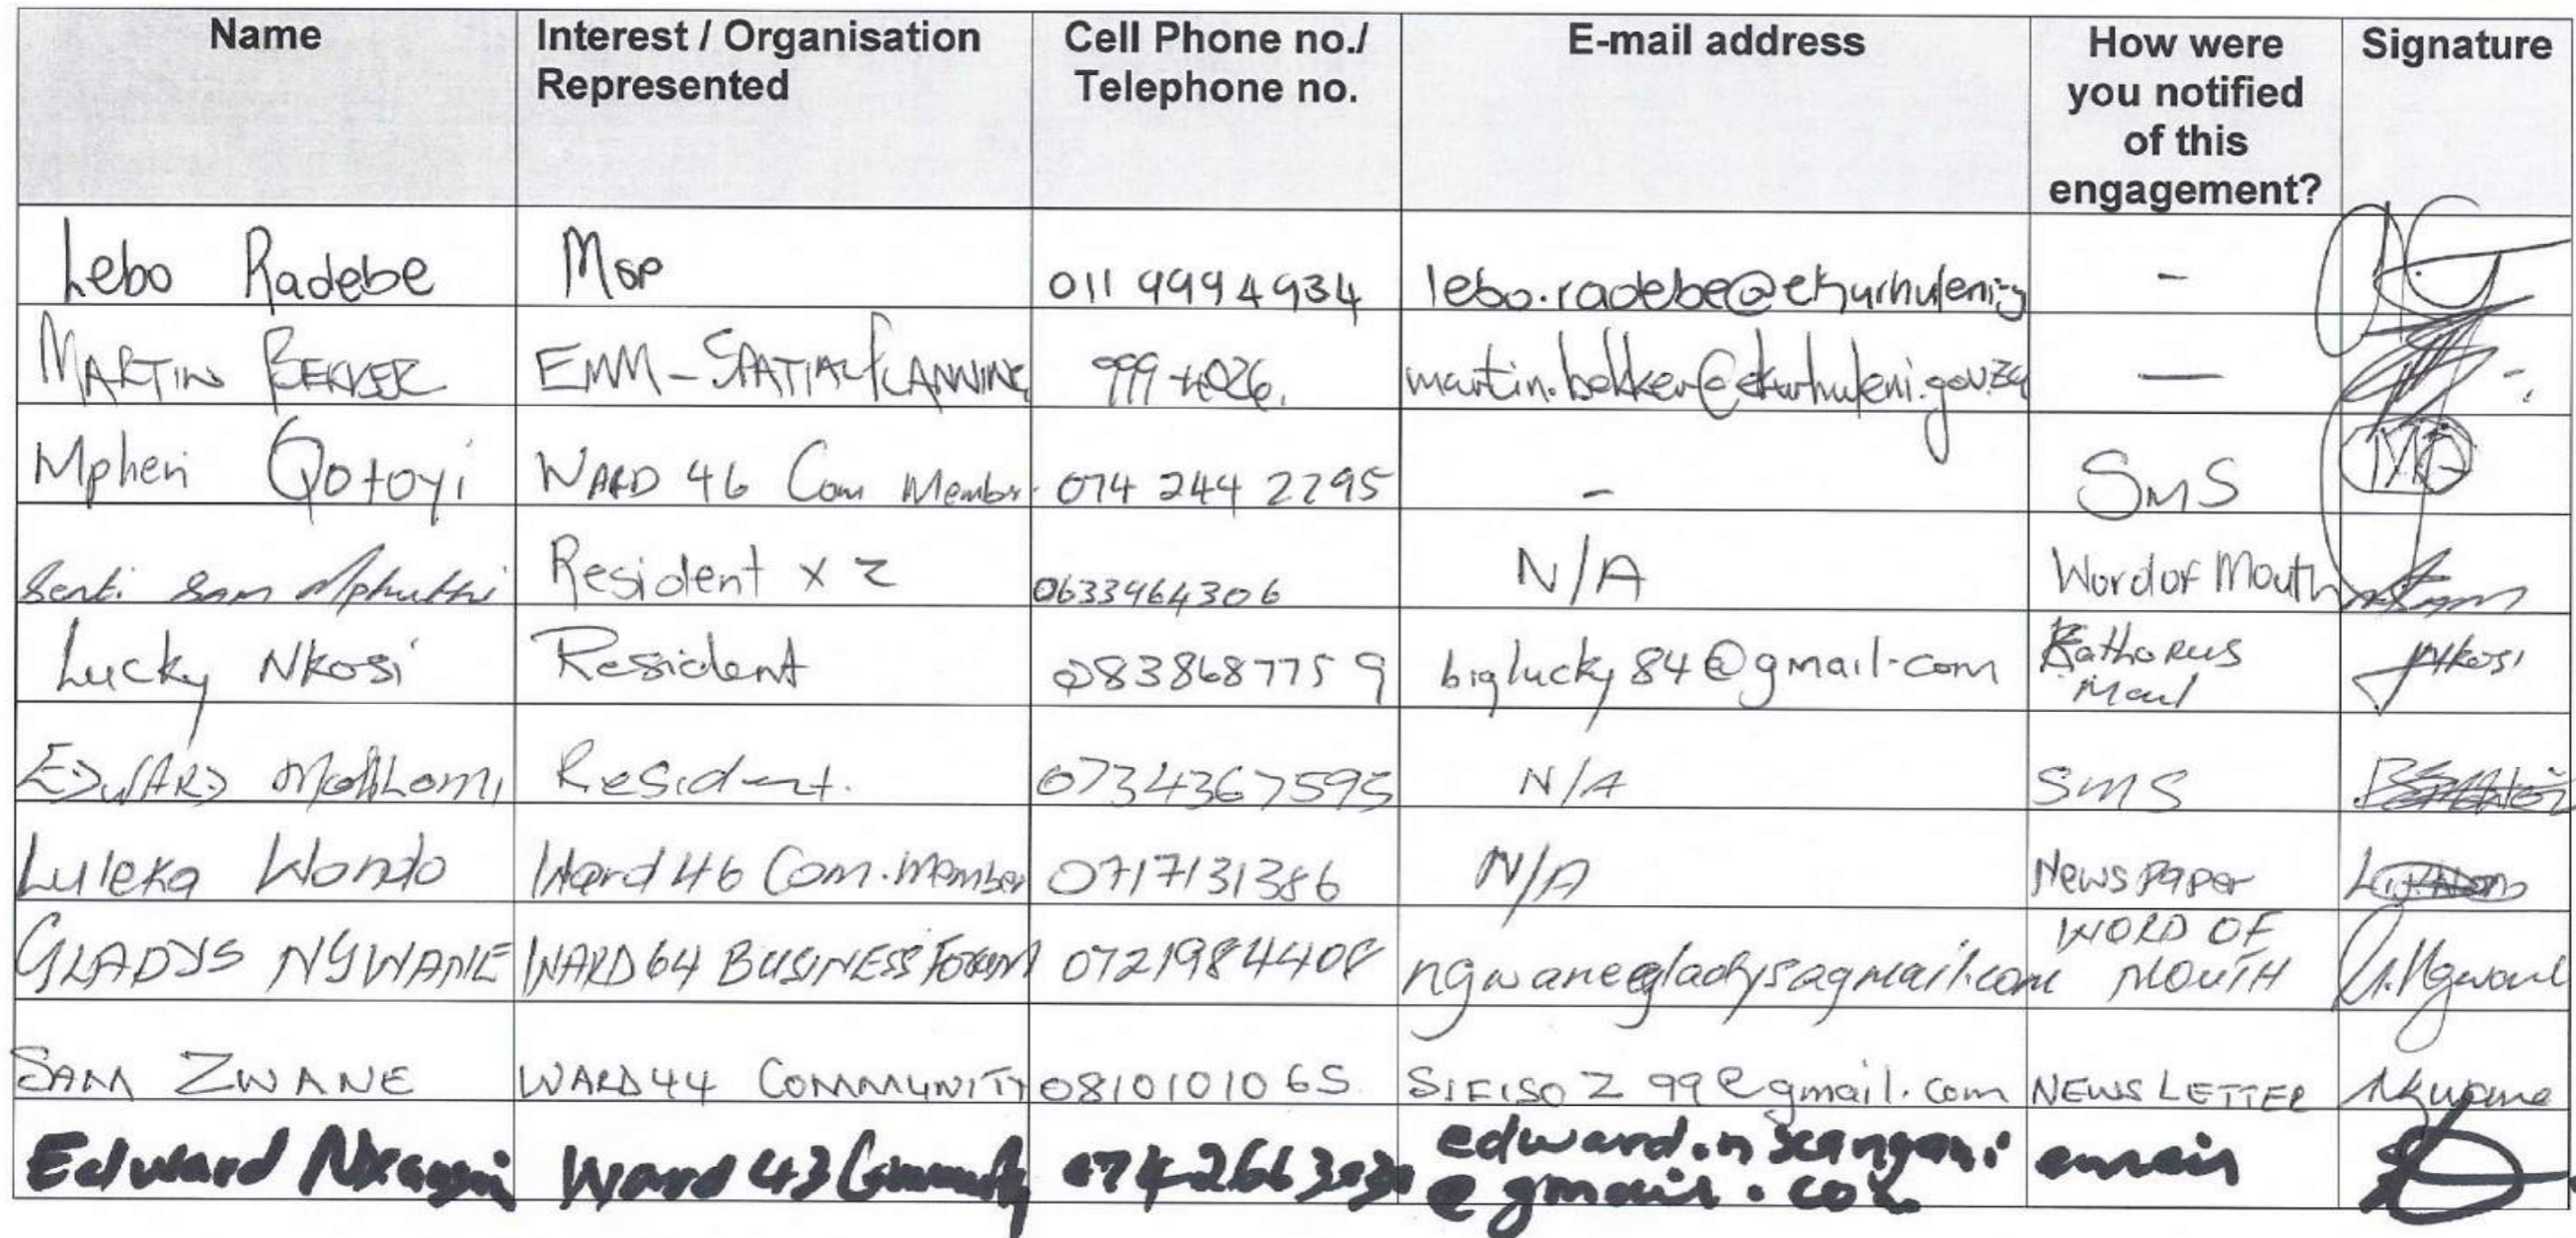 Name Interest / Organisation Represented Cell Phone no./ Telephone no. E-mail address How were you notified of this engagement? Signature
Lebo Radebe MSP 011 999 4934 lebo.radebe@ekurhuleni.g -
MARTIN BEKKER EMM-SPATIAL PLANNING 999-4026. martin.bekker@ekurhuleni.gov.za —
Mpheri Qotoyi WARD 46 Com Member 074 244 2295 - SMS
Senti Sam Mphuthi Resident x 2 0633464306 N/A Word of Mouth
Lucky Nkosi Resident 0838687759 biglucky84@gmail.com Kathorus Mail Nkosi
EDWARD Resident. 0734367595 N/A SMS
Luleka Wondo Ward 46 Com. Member 0717131386 N/A News paper
GLADYS NGWANE WARD 64 BUSINESS FORUM 0721984408 ngwanegladysagmail.com WORD OF MOUTH G.Ngwane
SAM ZWANE WARD 44 COMMUNITY 0810101065 SIFISOZ99@gmail.com NEWS LETTER
Edward Ward 43 Community